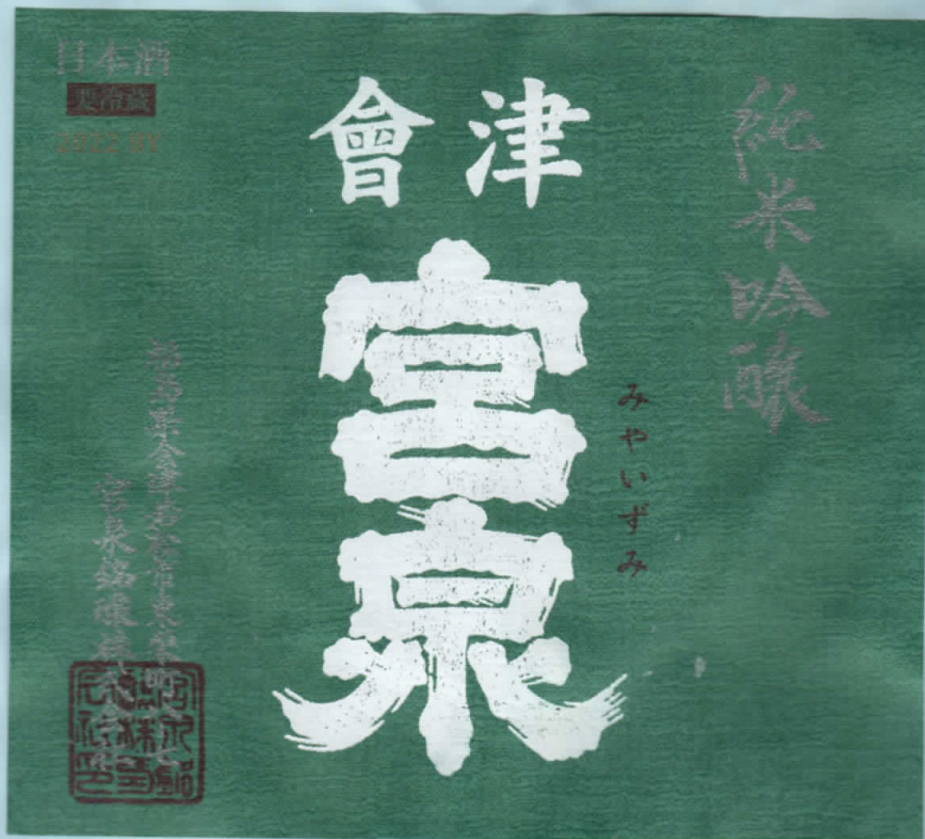 日本酒
要冷蔵
2022 BY
會津
宮泉
みやいずみ
純米吟醸
福島県会津若松市東栄町
宮泉銘醸株式会社